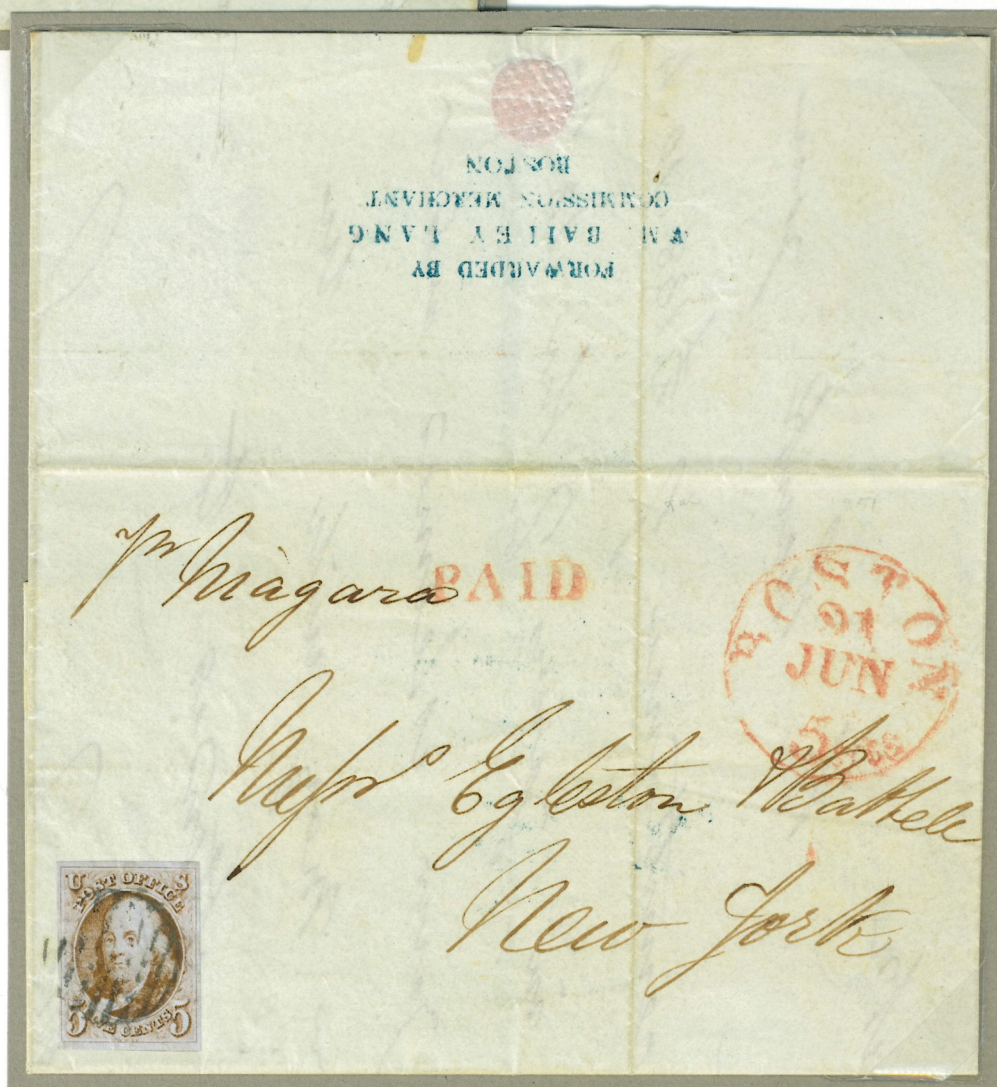 FORWARDED BY
WM. BAILEY LANG
COMMISSION MERCHANT.
BOSTON
pr Niagara
PAID
BOSTON
21
JUN
5 cts
Messrs Egleston & Battell
New York
U S
POST OFFICE
5 FIVE CENTS 5